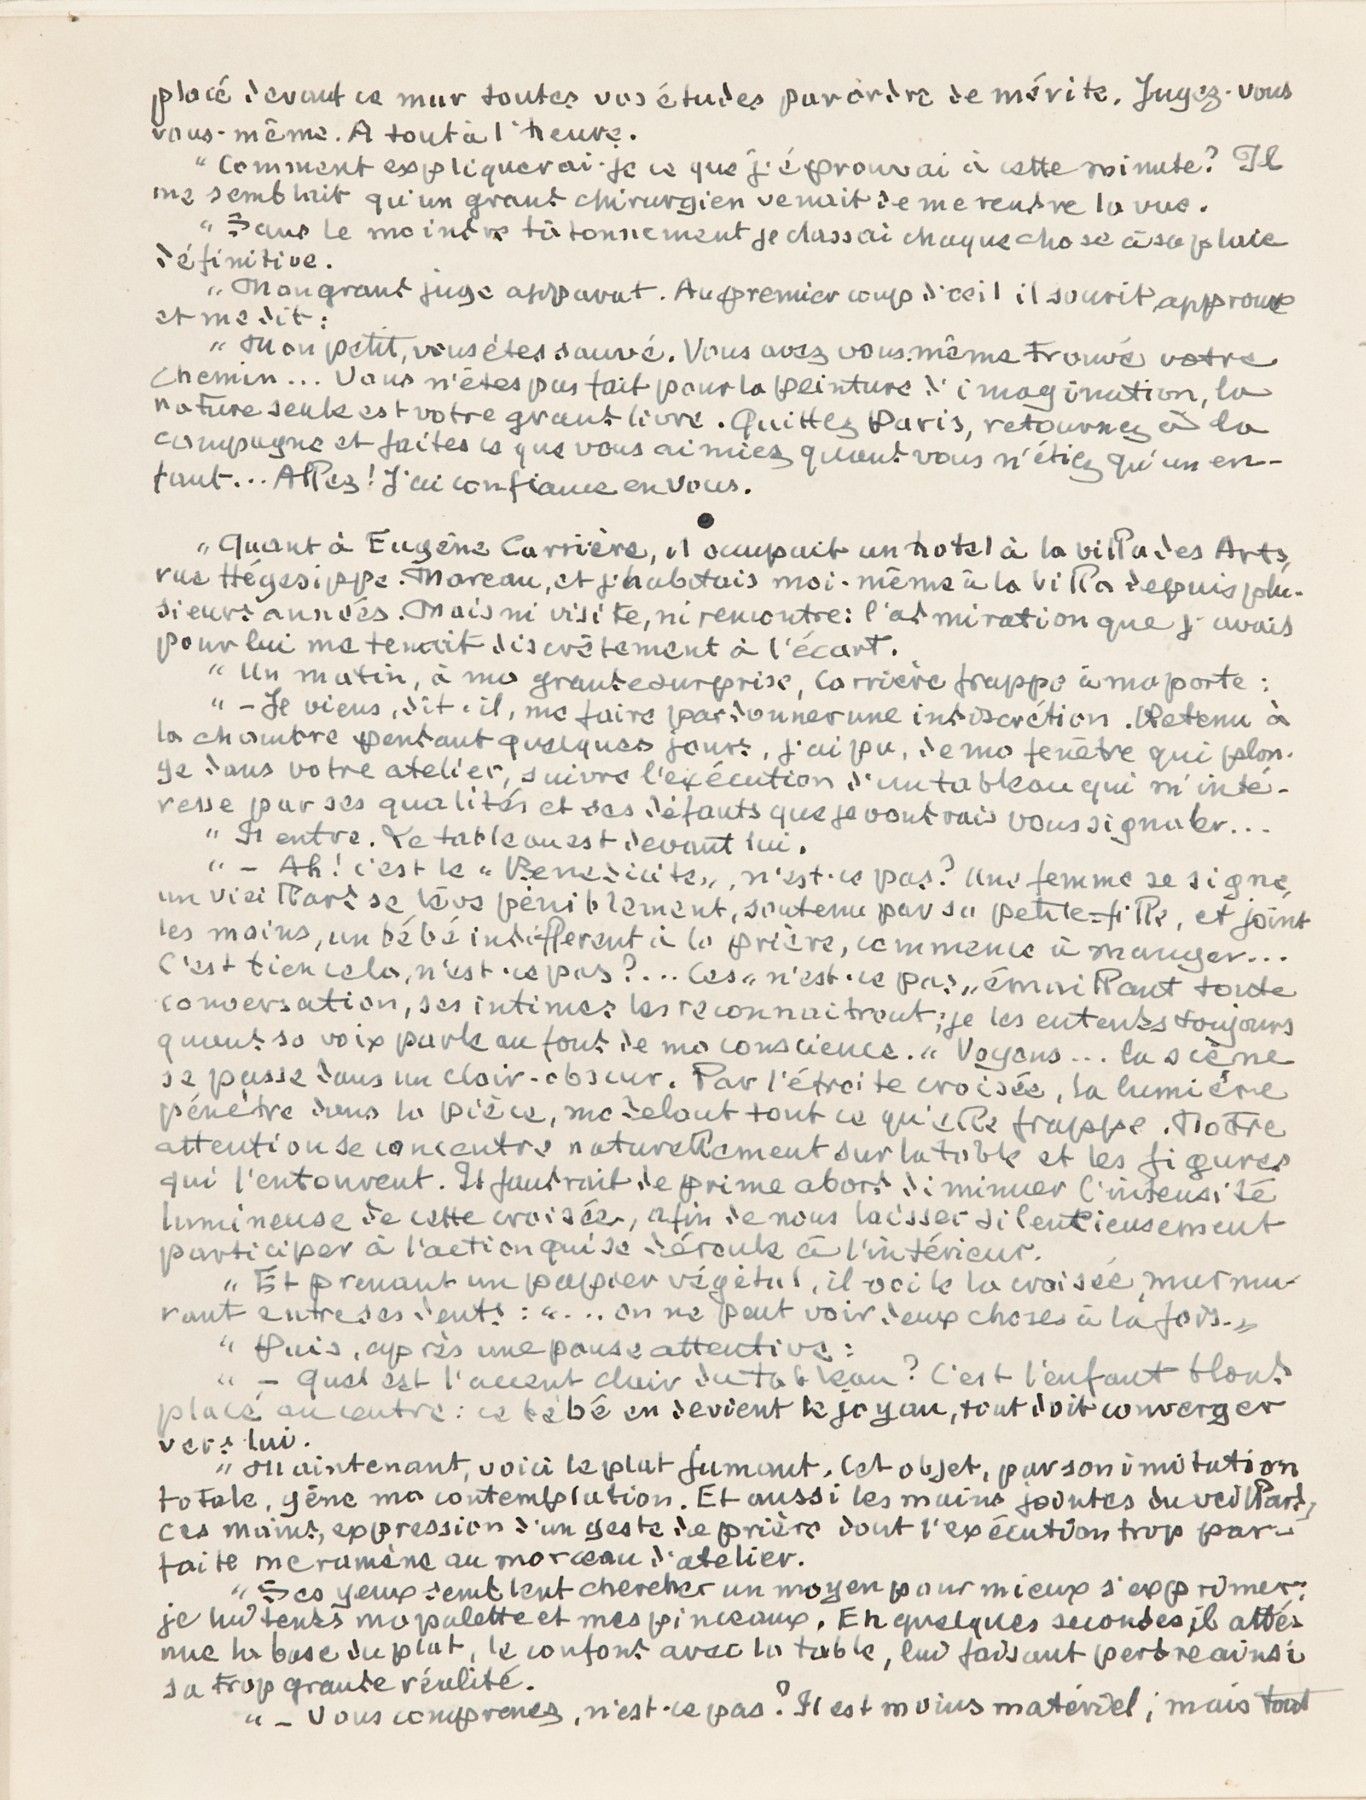 placé devant ce mur toutes vos études par ordre de mérite. Jugez-vous
vous-même. A tout à l'heure.
" Comment expliquerai-je ce que j'éprouvai à cette minute? Il
me semblait qu'un grand chirurgien venait de me rendre la vue.
" Sans le moindre tâtonnement je classai chaque chose à sa place
définitive.
" Mon grand juge apparut. Au premier coup d'œil il sourit, approuve
et me dit:
" Mon petit, vous êtes sauvé. Vous avez vous-même trouvé votre
chemin... Vous n'êtes pas fait pour la peinture d'imagination, la
nature seule est votre grand livre. Quittez Paris, retournez à la
campagne et faites ce que vous aimiez quand vous n'étiez qu'un en-
fant... Allez! J'ai confiance en vous.
" Quant à Eugène Carrière, il occupait un hotel à la villa des Arts,
rue Hégésippe-Moreau, et j'habitais moi-même à la villa depuis plu-
sieurs années. Mais ni visite, ni rencontre: l'admiration que j'avais
pour lui me tenait discrètement à l'écart.
" Un matin, à ma grande surprise, Carrière frappe à ma porte:
" - Je viens, dit-il, me faire pardonner une indiscrétion. Retenu à
la chambre pendant quelques jours, j'ai pu, de ma fenêtre qui plon-
ge dans votre atelier, suivre l'exécution d'un tableau qui m'inté-
resse par ses qualités et ses défauts que je voudrais vous signaler...
" Il entre. Le tableau est devant lui.
" - Ah! c'est le "Benedicite", n'est-ce pas? Une femme se signe,
un vieillard se lève péniblement, soutenu par sa petite-fille, et joint
les mains, un bébé indifférent à la prière, commence à manger...
C'est bien cela, n'est-ce pas?... Ces "n'est-ce pas" émaillant toute
conversation, ses intimes les reconnaîtront; je les entends toujours
quand sa voix parle au fond de ma conscience. " Voyons... la scène
se passe dans un clair-obscur. Par l'étroite croisée, la lumière
pénètre dans la pièce, modelant tout ce qu'elle frappe. Notre
attention se concentre naturellement sur la table et les figures
qui l'entourent. Il faudrait de prime abord diminuer l'intensité
lumineuse de cette croisée, afin de nous laisser silencieusement
participer à l'action qui se déroule à l'intérieur.
" Et prenant un papier végétal, il voile la croisée, murmu-
rant entre ses dents: "... on ne peut voir deux choses à la fois."
" Puis, après une pause attentive:
" - Quel est l'accent clair du tableau? C'est l'enfant blond
placé au centre: ce bébé en devient le joyau, tout doit converger
vers lui.
" Maintenant, voici le plat fumant. Cet objet, par son imitation
totale, gêne ma contemplation. Et aussi les mains jointes du vieillard,
ces mains, expression d'un geste de prière dont l'exécution trop par-
faite me ramène au morceau d'atelier.
" Ses yeux semblent chercher un moyen pour mieux s'exprimer:
je lui tends ma palette et mes pinceaux. En quelques secondes, il atté-
nue la base du plat, le confond avec la table, lui faisant perdre ainsi
sa trop grande réalité.
" - Vous comprenez, n'est-ce pas? Il est moins matériel; mais tout